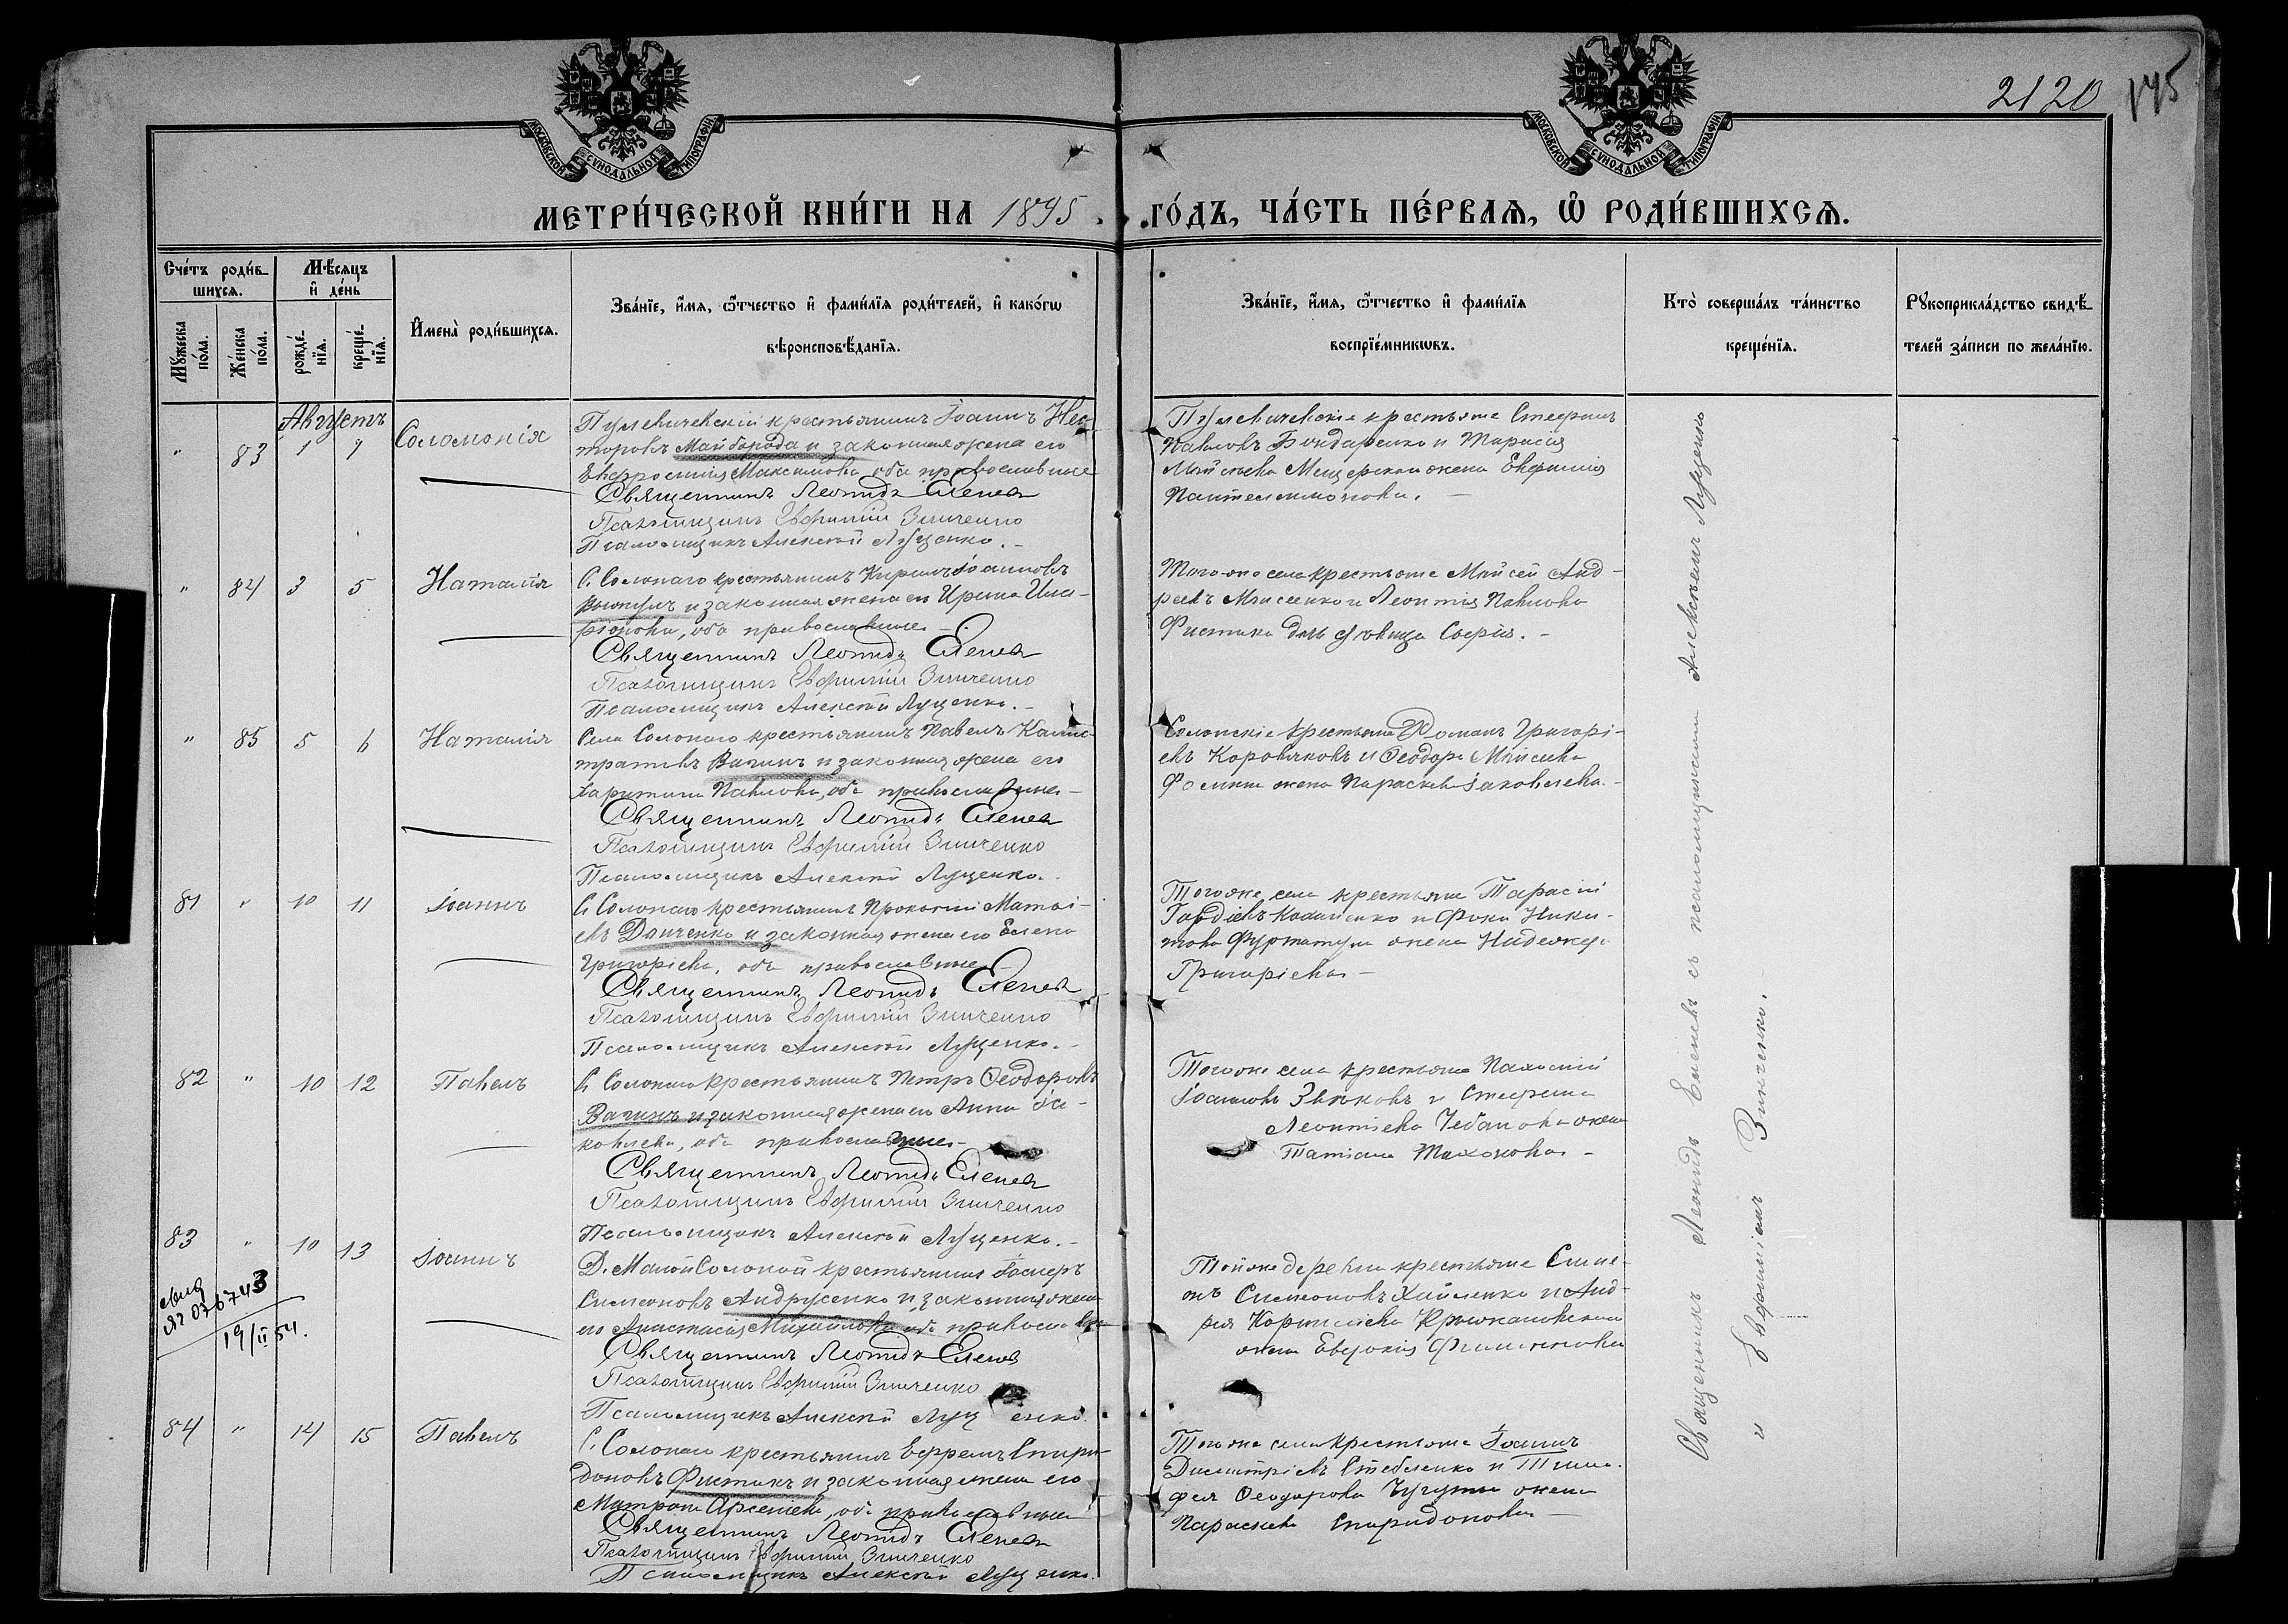 2120
145
МОСКОВСКОЙ СѴНОДАЛЬНОЙ ТИПОГРАФІИ
МОСКОВСКОЙ СѴНОДАЛЬНОЙ ТИПОГРАФІИ
МЕТРИ́ЧЕСКОЙ КНИ́ГИ НА 1895 ГО́ДЪ, ЧА́СТЬ ПЕ́РВАЯ, Ѡ҆ РОДИ́ВШИХСЯ.
Сче́тъ роди́в-
шихся.
Мꙋ́жеска по́ла.
Же́нска по́ла.
Мѣ́сяцъ
и҆ де́нь
рожде́-
нїя.
креще́-
нїя.
И҆мена̀ роди́вшихся.
Зва́нїе, и҆́мя, ѻ҆́тчество и҆ фами́лїя роди́телей, и҆ како́гѡ
вѣроисповѣ́данїя.
Зва́нїе, и҆́мя, ѻ҆́тчество и҆ фами́лїя
воспрїе́мникѡвъ.
Кто̀ соверша́лъ та́инство
креще́нїя.
Рꙋкоприкла́дство свидѣ́-
телей за́писи по жела́нїю.
Августъ
" 83 1 7 Соломонія
Пулевичевскій крестьянинъ Іоаннъ Нес-
торовъ Майборода и законная жена его
Евфросинія Максимова, оба православные
Священникъ Леонидъ Еленевъ
Псаломщикъ Евфимій Зинченко
Псаломщикъ Алексѣй Луценко.
Пулевичевскіе крестьяне Стефанъ
Павловъ Бондаренко и Тарасія
жена Евфимія
Пантелеимонова.
" 84 3 5 Наталія
С. Солонаго крестьянинъ Кирилъ Іоанновъ
и законная жена его Ирина Ила-
ріонова, оба православные
Священникъ Леонидъ Еленевъ
Псаломщикъ Евфимій Зинченко
Псаломщикъ Алексѣй Луценко.
Того же села крестьяне Мойсей Анд-
реевъ Моисеенко и Леонтія Павлова
Фистика дочь дѣвица Софія.
" 85 5 6 Наталія
Села Солонаго крестьянинъ Павелъ Калис-
тратовъ Вагинъ и законная жена его
Харитина Павлова, оба православные
Священникъ Леонидъ Еленевъ
Псаломщикъ Евфимій Зинченко
Псаломщикъ Алексѣй Луценко.
Солонскіе крестьяне Романъ Григорі-
евъ Коровяковъ и Ѳеодора Моисеева
Фомина жена Параскева Іаковлева.
81 " 10 11 Іоаннъ
С. Солонаго крестьянинъ Прокопій Матѳі-
евъ Донченко и законная жена его Елена
Григоріева, оба православные
Священникъ Леонидъ Еленевъ
Псаломщикъ Евфимій Зинченко
Псаломщикъ Алексѣй Луценко.
Того же села крестьяне Тарасій
Гордіевъ и Фоки Ники-
това жена Надежда
Григоріева
82 " 10 12 Павелъ
С. Солонаго крестьянинъ Петръ Ѳеодоровъ
Вагинъ и законная жена его Анна Іа-
ковлева, оба православные
Священникъ Леонидъ Еленевъ
Псаломщикъ Евфимій Зинченко
Псаломщикъ Алексѣй Луценко.
Того же села крестьяне Пахомій
Іоанновъ Звѣковъ и Стефана
Леонтіева Чебанова жена
Татіана Тихонова
83 " 10 13 Іоаннъ
19/II 54.
Д. Малой Солоной крестьянинъ Іосифъ
Симеоновъ Андрусенко и законная жена
его Анастасія Михайлова, оба православные
Священникъ Леонидъ Еленевъ
Псаломщикъ Евфимій Зинченко
Псаломщикъ Алексѣй Луценко.
Той же деревни крестьяне Симе-
онъ Симеоновъ Хайленко и Анд-
рея Корнилієва Крыжановскаго
жена Евдокія Филиппова
84 " 14 15 Павелъ
С. Солонаго крестьянинъ Ефремъ Спири-
доновъ Фистикъ и законная жена его
Матрона Арсеніева, оба православные
Священникъ Леонидъ Еленевъ
Псаломщикъ Евфимій Зинченко
Псаломщикъ Алексѣй Луценко.
Того же села крестьяне Іоаннъ
Димитріевъ Стебленко и Тимо-
фея Ѳеодорова жена
Параскева Спиридонова
Священникъ Леонидъ Еленевъ съ псаломщиками Алексѣемъ Луценко
и Евфиміемъ Зинченко.